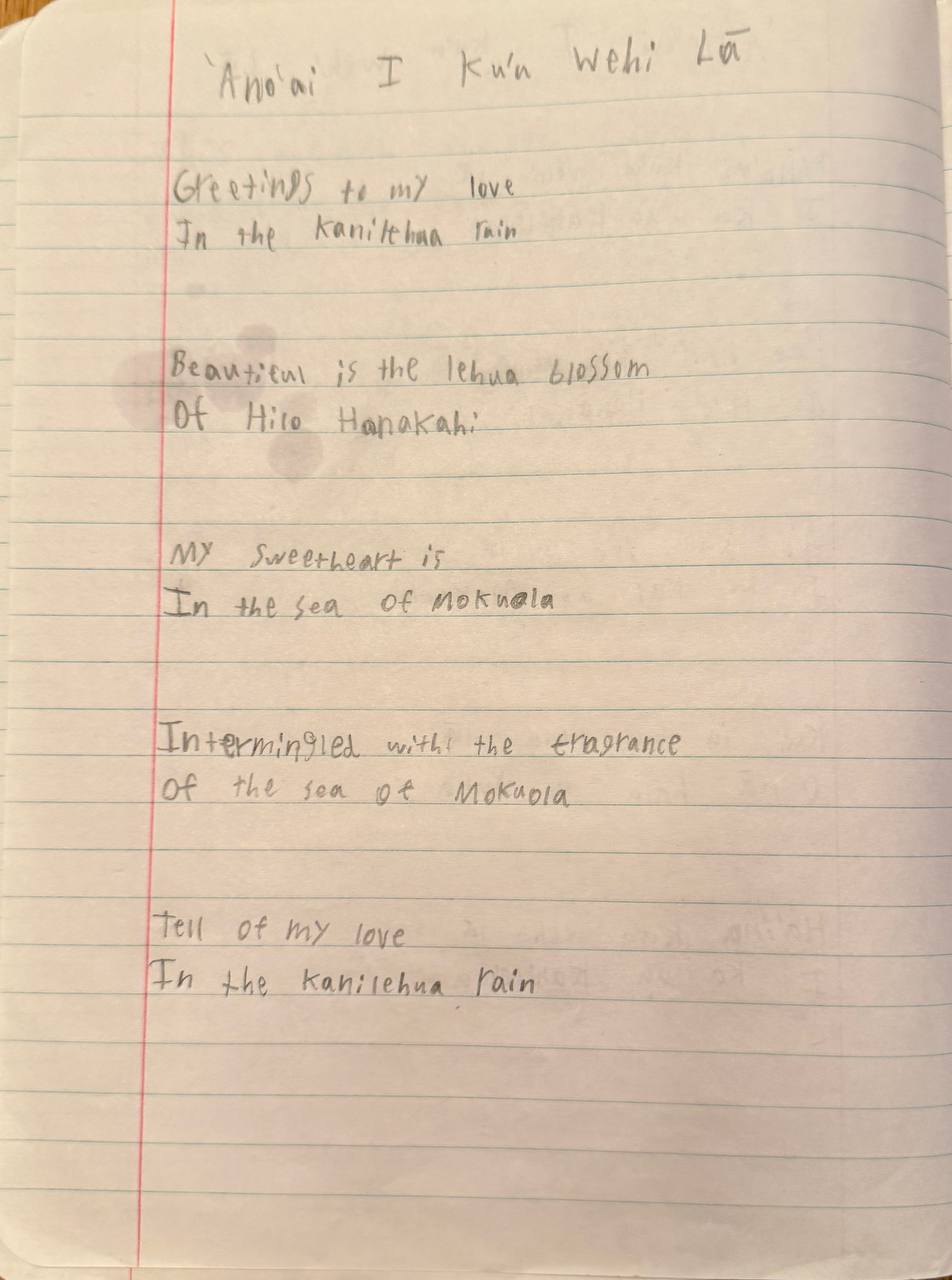 'Ano'ai I Ku'u Wehi Lā
Greetings to my love
In the Kanilehua rain
Beautiful is the lehua blossom
Of Hilo Hanakahi
My sweetheart is
In the sea of Mokuola
Intermingled with the fragrance
Of the sea of Mokuola
Tell of my love
In the Kanilehua rain